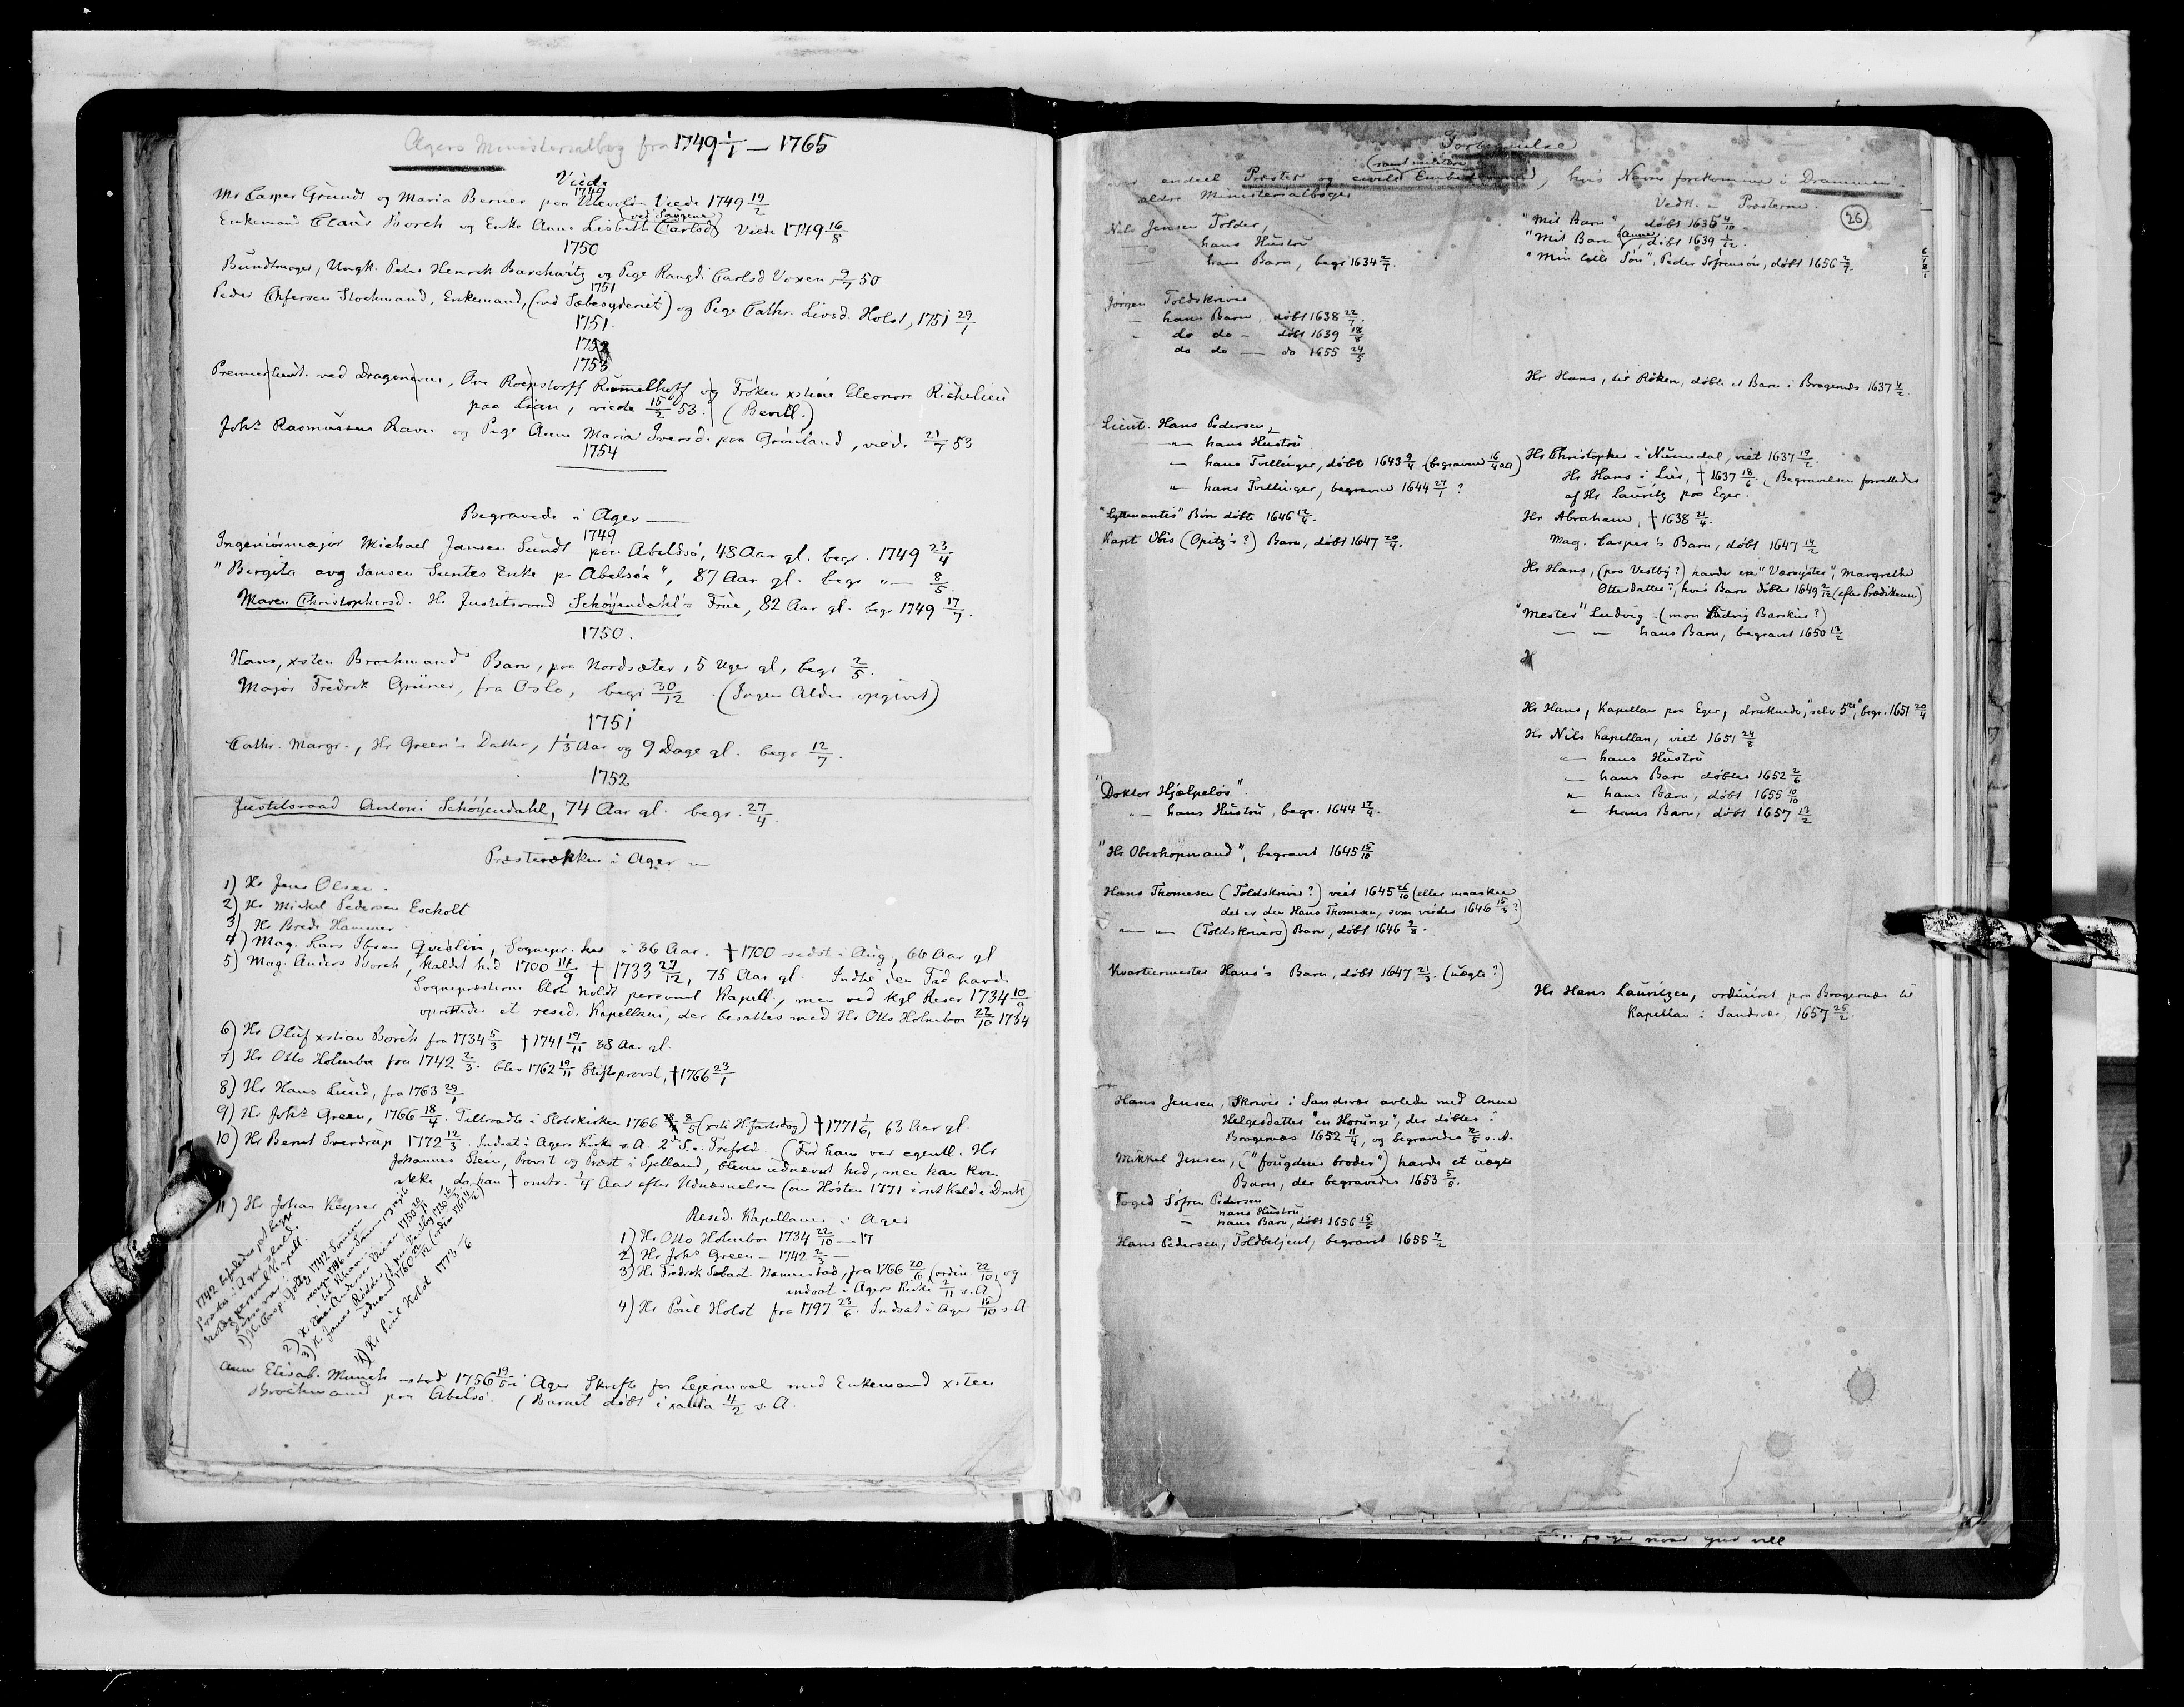 Agers Ministerialbog fra 1749 1/1 — 1765
Viede
1749
Mr Casper Grundt og Maria Berner paa Ulevold Viede 1749 19/2
(ved Saugene)
Enkemand Claus Borch og Enke Anne Lisbeth Carlsd. Viede 1749 16/8
1750
Bundtmager, Ungk. Peter Henrik Barchwitz og Pige Rangdi Carlsd Voxen, 9/7 50
1751
Peder Chfersen Stochmand, Enkemand, (ved Sæbesyderiet) og Pige Cathr. Livsd. Holst, 1751 29/1
1751.
1752
1753
Premierlieut. ved Dragonerne, Ove Roepstorff Rummelhoff og Frøken xstine Eleonore Richelieu
paa Lian, viede 15/2 53. (Bevill.)
Johs Rasmussen Ravn og Pige Anne Maria Iversd. paa Grønland, viede 21/7 53
1754
Begravede i Ager —
1749
Ingeniørmajor Michael Jansen Sundt paa Abelsø, 48 Aar gl. begr. 1749 23/4
"Bergita avg Jansen Suntes Enke p. Abelsøe", 87 Aar gl. begr " — 8/5.
Maren Christophersd. Hr Justitsraad Schøyendahl's Frue, 82 Aar gl. begr 1749 17/7.
1750.
Hans, xsten Brochmands Barn, paa Nordsæter, 5 Uger gl, begr 2/5.
Major Fredrik Grüner, fra Oslo, begr 30/12. (Ingen Alder opgivet)
1751
Cathr. Margr., Hr Green's Datter, 1 1/3 Aar og 9 Dage gl. begr 12/7.
1752
Justitsraad Antoni Schøyendahl, 74 Aar gl. begr. 27/4.
Præsterækken i Ager —
1) Hr Jens Olsen.
2) Hr Mickel Pedersen Escholt
3) Hr Brede Hammer.
4) Mag. Lars Ibsen Qvislin, Sognepr. her i 36 Aar. † 1700 sidst i Aug, 66 Aar gl
5) Mag. Anders Borch, kaldet hid 1700 14/9 † 1733 27/12, 75 Aar gl. Indtil den Tid havde
Sognepræsterne blot holdt personel Kapell., men ved Kgl Reser 1734 10/9
oprettedes et resid. Kapellani, der besattes med Hr Otto Holmboe 22/10 1734
6) Hr Oluf xstian Borch fra 1734 5/3 † 1741 19/11 38 Aar gl.
7) Hr Otto Holmboe fra 1742 2/3. blev 1762 19/11 Stiftsprovst, † 1766 23/1
8) Hr Hans Lund, fra 1763 29/1
9) Hr Johs Green, 1766 18/4. Tiltraadte i Slotskirken 1766 8/5 (xsti Hfartsdag) † 1771 1/6, 63 Aar gl.
10) Hr Bernt Sverdrup 1772 12/3. Indsat i Agers Kirke s. A. 2d S. e. Trefold. (Før ham var egentl. Hr
Johannes Steen, Provst og Præst i Sjelland, bleven udnævnt hid, men han kom
ikke, da han † omtr. 1/4 Aar efter Udnævnelsen (om Høsten 1771 i sit Kald i Dmk)
11) Hr Johan Keyser
1742 befaledes at begge
Præster i Ager skulde
holde personel Kapell.
4) Hr Poul Holst 1773 — 6
Resid. Kapellaner i Ager
1) Hr Otto Holmboe 1734 22/10 — 17
2) Hr Johs Green — 1742 2/3 —
3) Hr Fredrik Sebast. Nannestad, fra 1766 20/6 (ordin 22/10, og
indsat i Agers Kirke 2/11 s. A)
4) Hr Poul Holst fra 1797 23/6. Indsat i Ager 15/10 s. A
Anne Elisab. Munch stod 1756 19/5 i Ager Skrifte for Lejermaal med Enkemand xsten
Brochmand paa Abelsø. (Barnet døbt i xania 4/2 s. A.
Fortegnelse
(samt militære)
over endeel Præster og civile Embedsmænd, hvis Navne forekomme i Drammens
ældre Ministerialbøger
Vedk. — Præsterne.
26
Nils Jensen Tolder,
— hans Hustru
— hans Barn, begr 1634 2/7.
Jørgen Toldskriver
— hans Barn, døbt 1638 22/7.
" do do — døbt 1639 18/8
do do — do 1655 24/5
Lieut. Hans Pedersen,
—"— hans Hustru
—"— hans Tvillinger, døbt 1643 9/4 (begravne 16/4 s A)
"— hans Tvillinger, begravne 1644 27/1 ?
"Lyttenantes" Børn døbt 1646 12/4.
Kapt Obis (Opitz's?) Barn, døbt 1647 20/4.
"Doktor Hjælpeløs".
"— hans Hustru, begr. 1644 17/4.
"Hr Oberhopmand", begravet 1645 15/10
Hans Thomesen (Toldskriver?) viet 1645 26/10 (eller maaskee
det er den Hans Thomesen, som viedes 1646 15/3 ?)
"— "— (Toldskrivers) Barn, døbt 1646 9/8.
Kvartermester Hans's Barn, døbt 1647 21/3. (uægte?)
Hans Jensen, Skriver i Sandsvær avlede med Anne
Helgesdatter "en Horunge", der døbtes i
Bragernæs 1652 11/4, og begravedes 2/5 s. A.
Mikkel Jensen, ("fougdens broder") havde et uægte
Barn, der begravedes 1653 5/5.
Foged Søfren Pedersen
hans Hustru
— hans Barn, døbt 1656 15/5
Hans Pedersen, Toldbetjent, begravet 1655 7/2
"Mit Barn" døbt 1635 4/10.
"Mit Barn (Anne), døbt 1639 1/12.
"Min lille Søn", Peder Søfrensøn, døbt 1656 2/7.
Hr Hans, til Røken, døbte et Barn i Bragernæs 1637 4/2.
Hr Christopher i Numedal, viet 1637 19/2.
Hr Hans i Lier, † 1637 18/6. Begravelsen forrettedes
af Hr Lauritz paa Eger.
Hr Abraham, † 1638 21/4.
Mag. Casper's Barn, døbt 1647 14/2
Hr Hans, (paa Vestby?) havde en "Værsyster", Margrethe
Ottesdatter", hvis Barn døbtes 1649 2/12 (efter Prædikenen)
"Mester" Ludvig — (mon Ludvig Barskius?)
— — hans Barn, begravet 1650 13/2
H
Hr Hans, Kapellan paa Eger, druknede, "selv 5te", begr. 1651 20/4
Hr Nils Kapellan, viet 1651 24/8
"— hans Hustru
— hans Barn døbtes 1652 2/6
"— hans Barn, døbt 1655 10/10
"— hans Barn, døbt 1657 13/2
Hr Hans Lauritzen, ordineret paa Bragernæs til
Kapellan i Sandsvær, 1657 25/2.